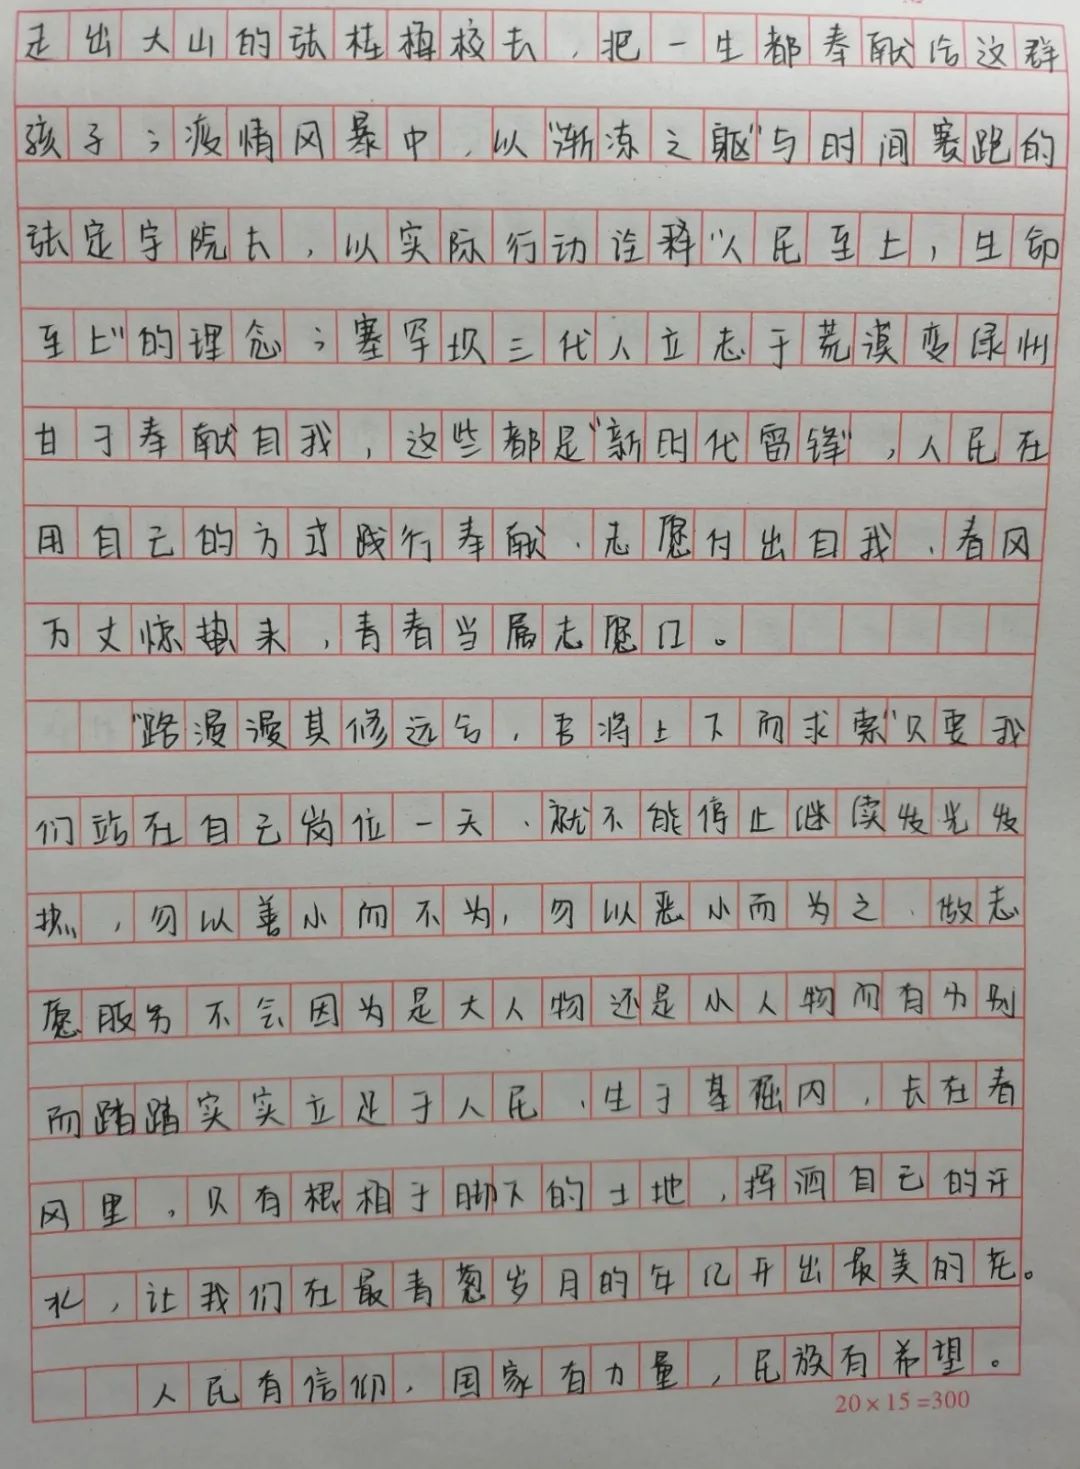 走出大山的张桂梅校长，把一生都奉献给这群
孩子；疫情风暴中，以“渐冻之躯”与时间赛跑的
张定宇院长，以实际行动诠释“人民至上，生命
至上”的理念；塞罕坝三代人立志于荒漠变绿州
甘于奉献自我，这些都是“新时代雷锋”，人民在
用自己的方式践行奉献、志愿付出自我、春风
万丈惊蛰来，青春当属志愿红。
“路漫漫其修远兮，吾将上下而求索”只要我
们站在自己岗位一天、就不能停止继续发光发
热，勿以善小而不为，勿以恶小而为之、做志
愿服务不会因为是大人物还是小人物而有分别
而踏踏实实立足于人民、生于基掘内，长在春
风里，只有根植于脚下的土地，挥洒自己的汗
水，让我们在最青葱岁月的年亿开出最美的花。
人民有信仰，国家有力量，民族有希望。
20×15=300